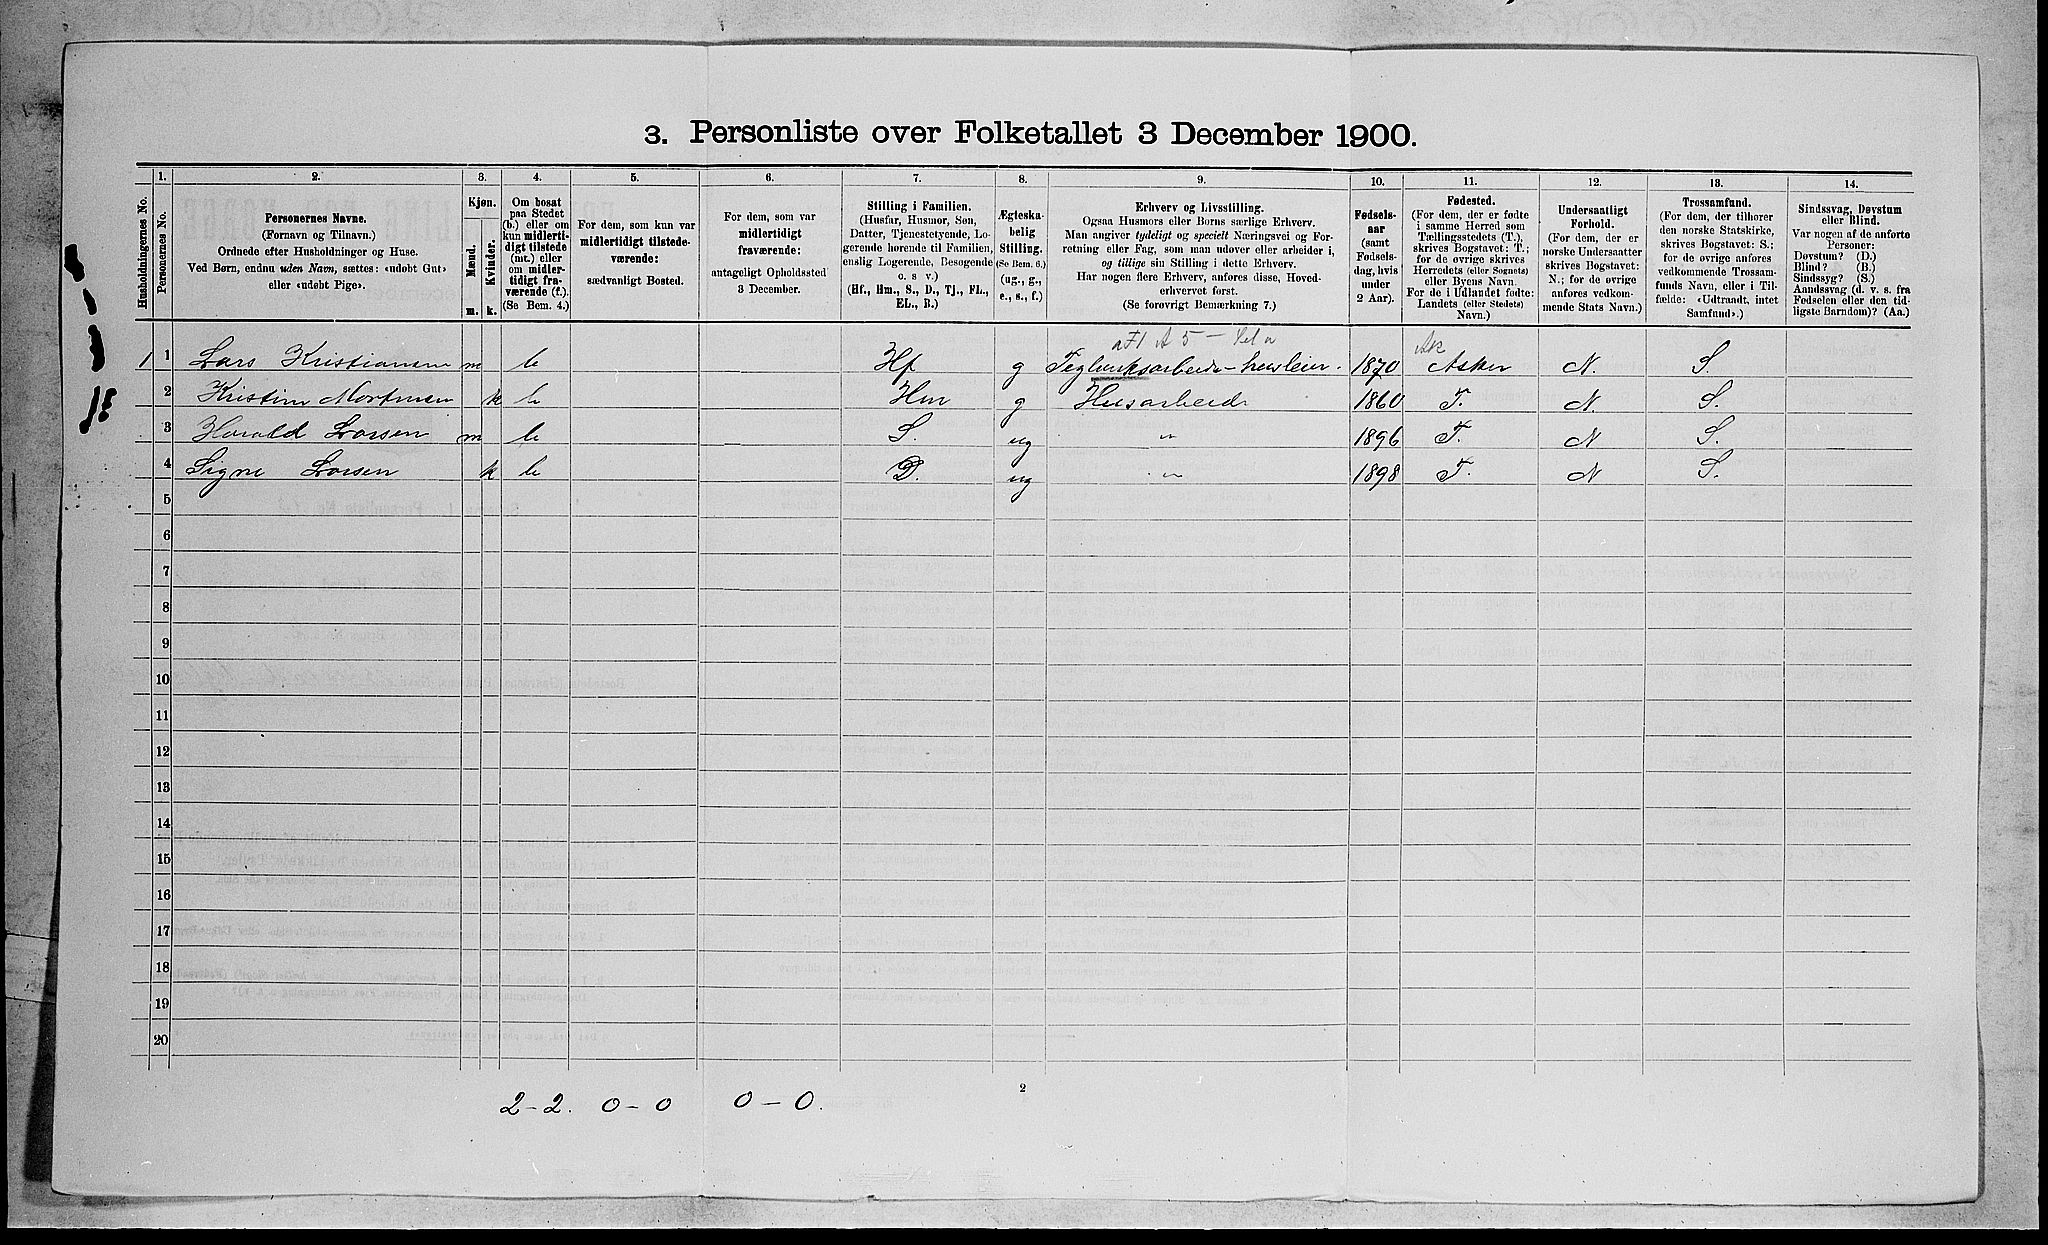 3. Personliste over Folketallet 3 December 1900.
Husholdningernes No.
1.
Personernes No.
2.
Personernes Navne.
(Fornavn og Tilnavn.)
Ordnede efter Husholdninger og Huse.
Ved Børn, endnu uden Navn, sættes: «udøbt Gut»
eller «udøbt Pige».
3.
Kjøn.
Mænd.
Kvinder.
m.
k.
4.
Om bosat
paa Stedet
(b.) eller om
kun midlerti-
digt tilstede
(mt.) eller
om midler-
tidigt fra-
værende (f.).
(Se Bem. 4.)
5.
For dem, som kun var
midlertidigt tilstede-
værende:
sædvanligt Bosted.
6.
For dem, som var
midlertidigt
fraværende:
antageligt Opholdssted
3 December.
7.
Stilling i Familien.
(Husfar, Husmor, Søn,
Datter, Tjenestetyende, Lo-
gerende hørende til Familien,
enslig Logerende, Besøgende
o. s v.)
(Hf., Hm., S., D., Tj., FL.,
EL., B.)
8.
Ægteska-
belig
Stilling.
(Se Bem. 6.)
(ug., g.,
e., s., f.)
9.
Erhverv og Livsstilling.
Ogsaa Husmors eller Børns særlige Erhverv.
Man angiver tydeligt og specielt Næringsvei og For-
retning eller Fag, som man udøver eller arbeider i,
og tillige sin Stilling i dette Erhverv.
Har nogen flere Erhverv, anføres disse, Hoved-
erhvervet først.
(Se forøvrigt Bemærkning 7.)
10.
Fødsels-
aar
(samt
Fødsels-
dag, hvis
under
2 Aar).
11.
Fødested.
(For dem, der er fødte
i samme Herred som
Tællingsstedets (T.),
skrives Bogstavet: T.;
for de øvrige skrives
Herredets (eller Sognets)
eller Byens Navn.
For de i Udlandet fødte:
Landets (eller Stedets)
Navn.)
12.
Undersaatligt
Forhold.
(For dem, der er
norske Undersaatter
skrives Bogstavet:
N.; for de øvrige
anføres vedkom-
mende Stats Navn.)
13.
Trossamfund.
(For dem, der tilhører
den norske Statskirke,
skrives Bogstavet: S.;
for de øvrige anføres
vedkommende Trossam-
funds Navn, eller i Til-
fælde: «Udtraadt, intet
Samfund».)
14.
Sindssvag, Døvstum
eller Blind.
Var nogen af de anførte
Personer:
Døvstum? (D.)
Blind? (B.)
Sindssyg? (S.)
Aandssvag (d. v. s. fra
Fødselen eller den tid-
ligste Barndom)? (Aa.)
1 1 Lars Kristiansen m b Hf g 1870 Asker N. S.
2 Kristine Mortensen k b Hm g Husarbeide 1860 T. N. S.
3 Harald Larsen m b S. ug " 1896 T. N S.
4 Signe Larsen k b D. ug " 1898 T. N S.
5
6
7
8
9
10
11
12
13
14
15
16
17
18
19
20
2
2-2. 0-0 0-0.